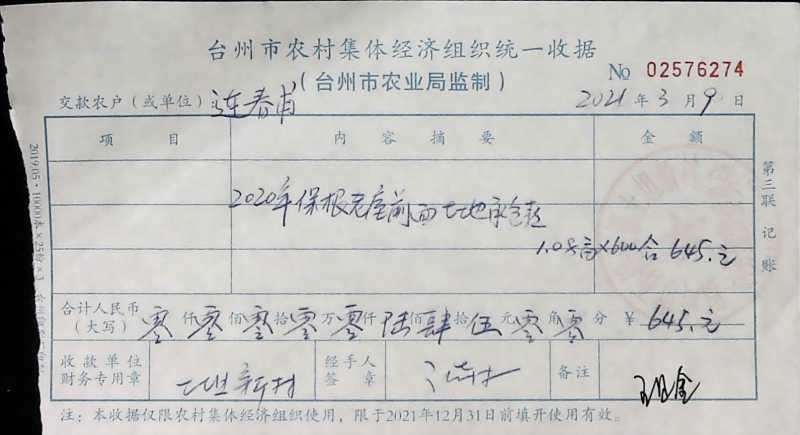 台州市农村集体经济组织统一收据
(台州市农业局监制)
No 02576274
交款农户(或单位):连春甫
2021年3月9日
项目 内容摘要 金额
2020年保根老屋前面土地承包款
645.元
合计人民币(大写) 零仟零佰零拾零万零仟陆佰肆拾伍元零角零分 ¥645.元
收款单位财务专用章
经手人签章
备注 现金
注:本收据仅限农村集体经济组织使用,限于2021年12月31日前填开使用有效。
第三联 记账